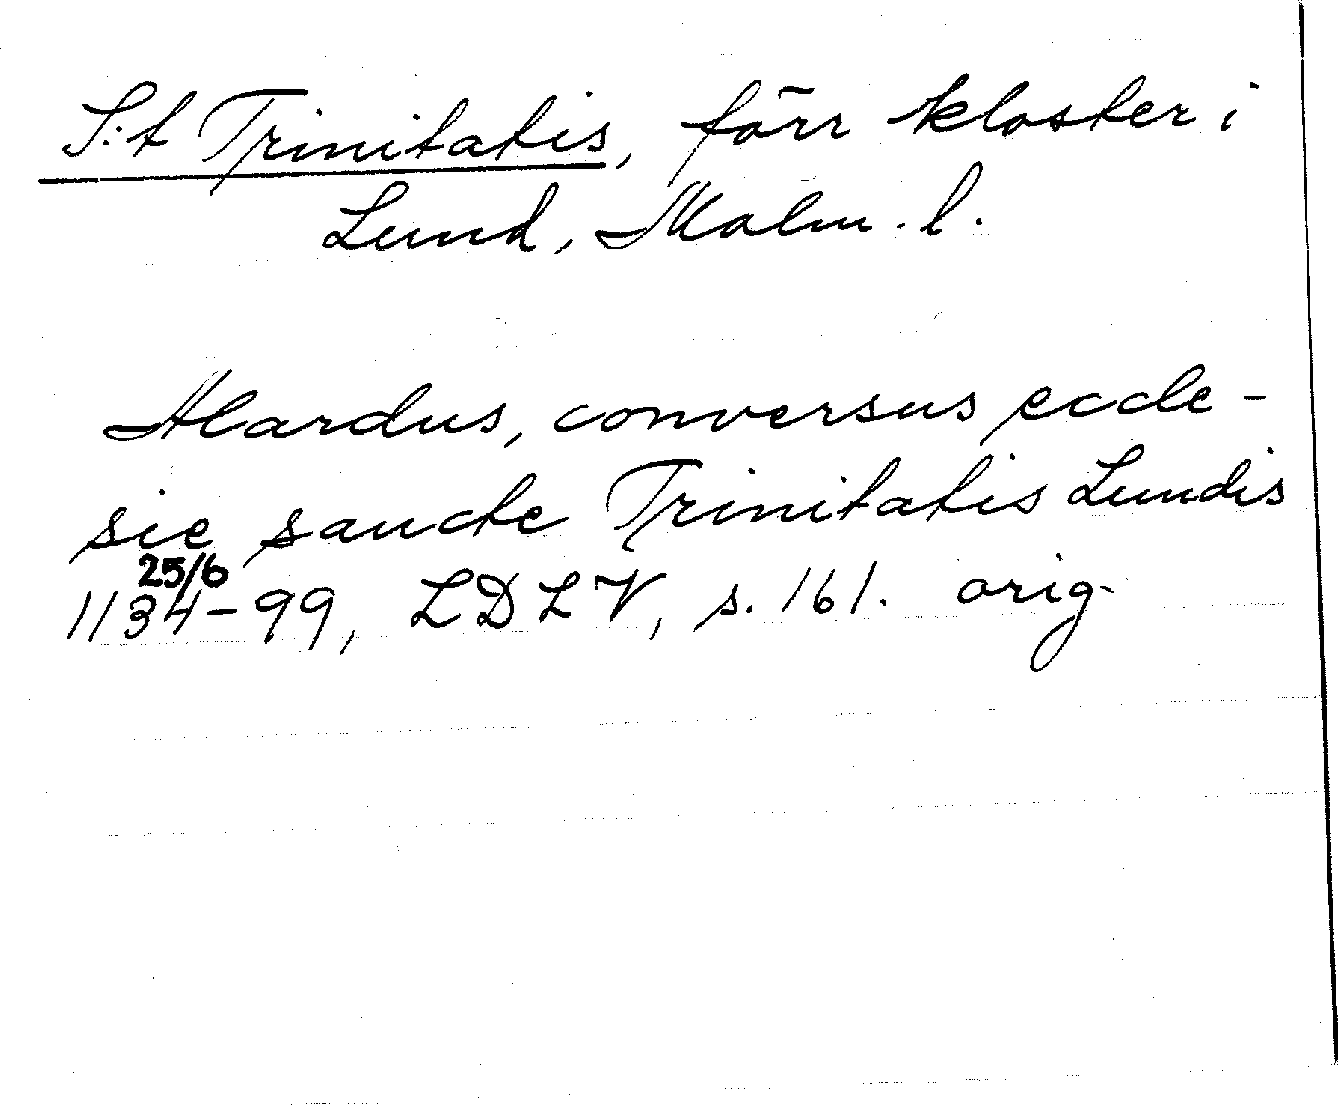 S:t Trinitatis, förr kloster i
Lund, Malm. l.
Alardus, conversus eccle-
sie sancte Trinitatis Lundis
25/6
1134-99, LDLV, s. 161. orig